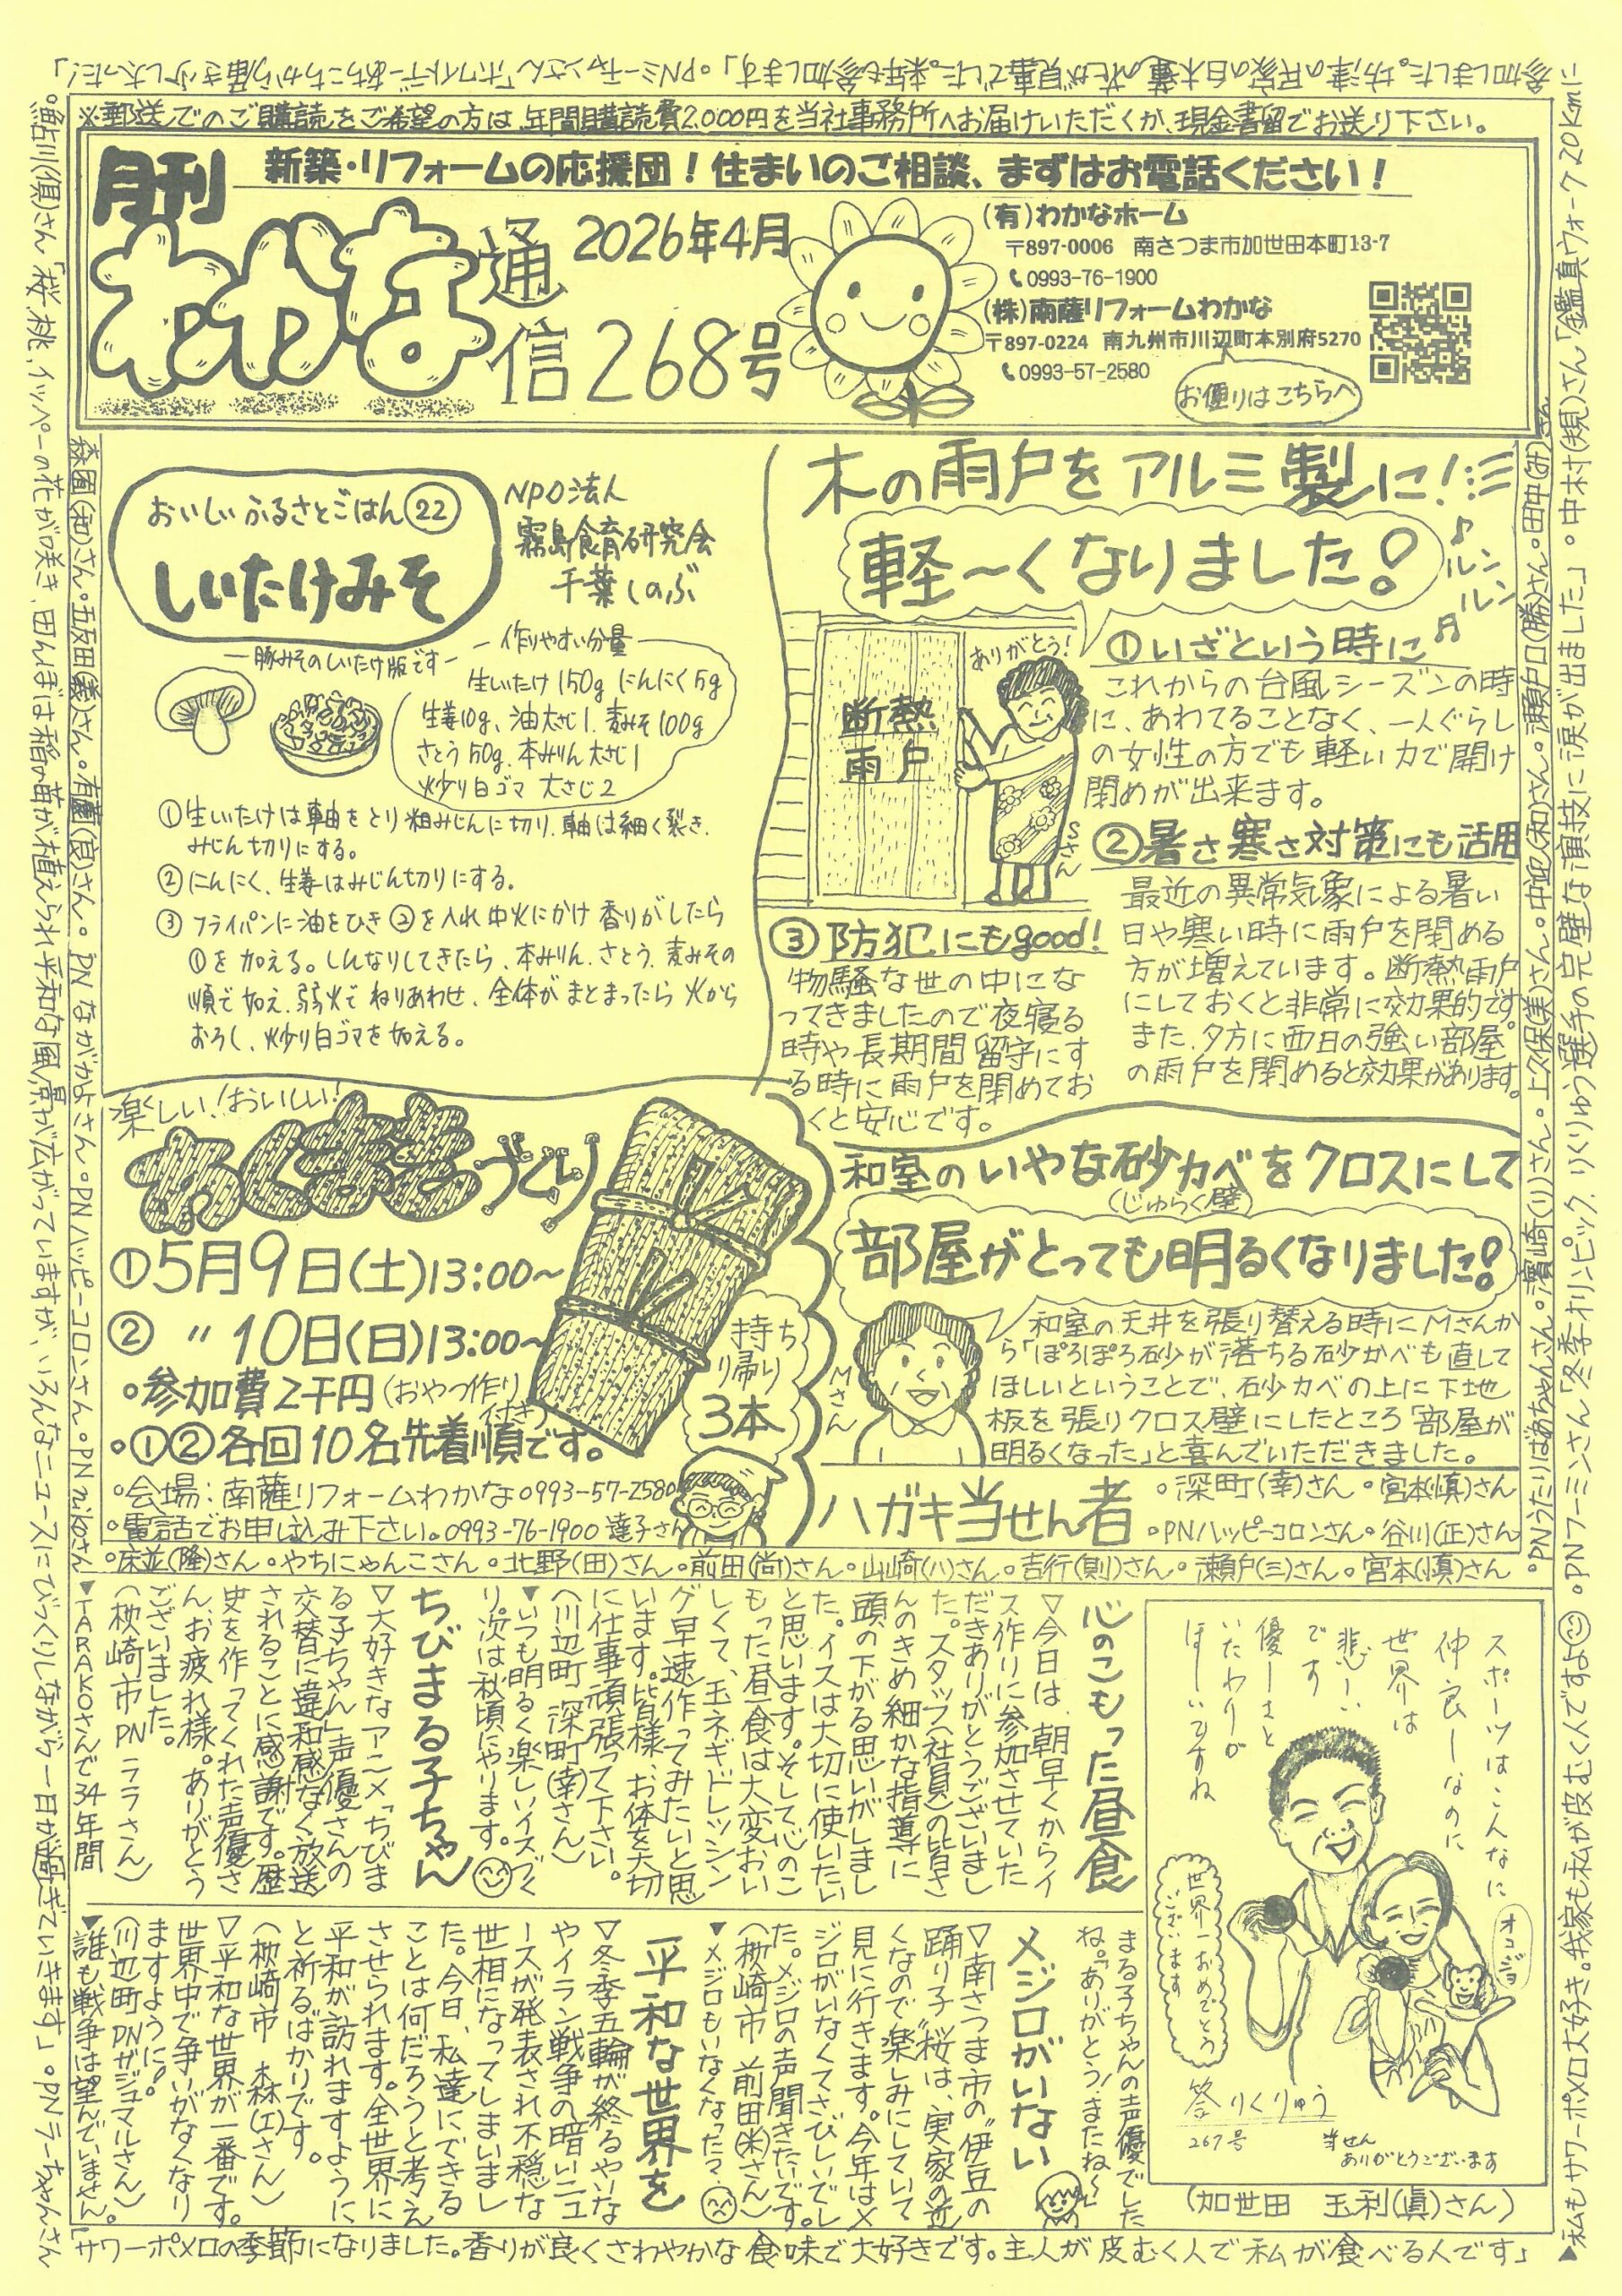 ※郵送でのご購読をご希望の方は、年間購読費2,000円を当社事務所へお届けいただくか、現金書留でお送り下さい。
月刊
新築・リフォームの応援団！住まいのご相談、まずはお電話ください！
わかな
通信
2026年4月
268号
(有)わかなホーム
〒897-0006 南さつま市加世田本町13-7
0993-76-1900
(株)南薩リフォームわかな
〒897-0224 南九州市川辺町本別府5270
0993-57-2580
お便りはこちらへ
おいしいふるさとごはん㉒
しいたけみそ
NPO法人
霧島食育研究会
千葉しのぶ
豚みそのしいたけ版です
作りやすい分量
生しいたけ150g にんにく5g
生姜10g、油大さじ1、麦みそ100g
さとう50g、本みりん大さじ1
炒り白ゴマ 大さじ2
①生しいたけは軸をとり粗みじんに切り、軸は細く裂き、
みじん切りにする。
②にんにく、生姜はみじん切りにする。
③フライパンに油をひき②を入れ中火にかけ香りがしたら
①を加える。しんなりしてきたら、本みりん、さとう、麦みその
順で加え、弱火でねりあわせ、全体がまとまったら火から
おろし、炒り白ゴマを加える。
木の雨戸をアルミ製に！
軽〜くなりました！
ルンルン
ありがとう！
断熱
雨戸
Sさん
①いざという時に
これからの台風シーズンの時
に、あわてることなく、一人ぐらし
の女性の方でも軽い力で開け
閉めが出来ます。
②暑さ寒さ対策にも活用
最近の異常気象による暑い
日や寒い時に雨戸を閉める
方が増えています。断熱雨戸
にしておくと非常に効果的です。
また、夕方に西日の強い部屋
の雨戸を閉めると効果があります。
③防犯にもgood!
物騒な世の中にな
ってきましたので夜寝る
時や長期間留守にす
る時に雨戸を閉めてお
くと安心です。
楽しい！おいしい！
あくまきづくり
①5月9日(土)13:00〜
②〃10日(日)13:00〜
・参加費2千円(おやつ作り付き)
・①②各回10名先着順です。
持ち帰り
3本
・会場：南薩リフォームわかな0993-57-2580
・電話でお申し込み下さい。0993-76-1900 達子さん
和室のいやな砂カベをクロスにして
(じゅらく壁)
部屋がとっても明るくなりました！
Mさん
和室の天井を張り替える時にMさんか
ら「ぽろぽろ砂が落ちる砂かべも直して
ほしいということで、砂カベの上に下地
板を張りクロス壁にしたところ「部屋が
明るくなった」と喜んでいただきました。
ハガキ当せん者
・深町(幸)さん・宮本(慎)さん
・PNハッピーコロンさん・谷川(正)さん
・床並(隆)さん・やちにゃんこさん・北野(田)さん・前田(尚)さん・山崎(ハ)さん・吉行(則)さん・瀬戸(三)さん・宮本(慎)さん
心のこもった昼食
▽今日は、朝早くからイ
ス作りに参加させていた
だきありがとうございまし
た。スタッフ(社員)の皆さ
んのきめ細かな指導に
頭の下がる思いがしまし
た。イスは大切に使いたい
と思います。そして心のこ
もった昼食は大変おい
しくて、玉ネギドレッシン
グ早速作ってみたいと思
います。皆様、お体を大切
に仕事頑張って下さい。
(川辺町 深町(幸)さん)
▼いつも明るく楽しいイスづく
り。次は秋頃にやります。
ちびまる子ちゃん
▽大好きなアニメ「ちびま
る子ちゃん」声優さんの
交替に違和感なく放送
されることに感謝です。歴
史を作ってくれた声優さ
ん、お疲れ様。ありがとう
ございました。
(枕崎市 PNララさん)
▼TARAKOさんで34年間
まる子ちゃんの声優でした
ね。「ありがとう！またね〜」
メジロがいない
▽南さつま市の“伊豆の
踊り子”桜は、実家の近
くなので楽しみにしていて
見に行きます。今年はメ
ジロがいなくてさびしいでし
た。メジロの声聞きたいです。
(枕崎市 前田(米)さん)
▼メジロもいなくなった？
平和な世界を
▽冬季五輪が終るやいな
やイラン戦争の暗いニュ
ースが発表され不穏な
世相になってしまいまし
た。今日、私達にできる
ことは何だろうと考え
させられます。全世界に
平和が訪れますように
と祈るばかりです。
(枕崎市 森(エ)さん)
▽平和な世界が一番です。
世界中で争いがなくなり
ますように！
(川辺町PNガジュマルさん)
▼誰も戦争は望んでいません。
スポーツはこんなに
仲良しなのに
世界は
悲しい
です
優しさと
いたわりが
ほしいですね
オコジョ
世界一おめでとう
ございます
答 りくりゅう
267号
当せん
ありがとうございます
(加世田 玉利(眞)さん)
森園(和)さん・五反田(義)さん・有薗(良)さん・PNなかがよさん・PNハッピーコロンさん・PNぷゆのさん
・鮎川(倶)さん「桜、桃、イッペーの花が咲き、田んぼは稲の苗が植えられ平和な風景が広がっていますが、いろんなニュースにびっくりしながら一日が過ぎていきます」・PNラーちゃんさん
「サワーポメロの季節になりました。香りが良くさわやかな食味で大好きです。主人が皮むく人で私が食べる人です」
▲私もサワーポメロ大好き。我家も私が皮むく人ですよ・PNフーミンさん「冬季オリンピック、りくりゅう選手の完璧な演技に涙が出ました」・中村(規)さん「鑑真ウォーク20kmに
参加しました。坊津の民家の白木蓮の花が見事でした。来年も参加します」・PNミーチャンさん「ホワイトデーあちこちから届き少し太った！」
・PNうたりばあちゃんさん・濱崎(リ)さん・上久保(美)さん・中迎(和)さん・瀬戸口(勝)さん・田中(み)さん